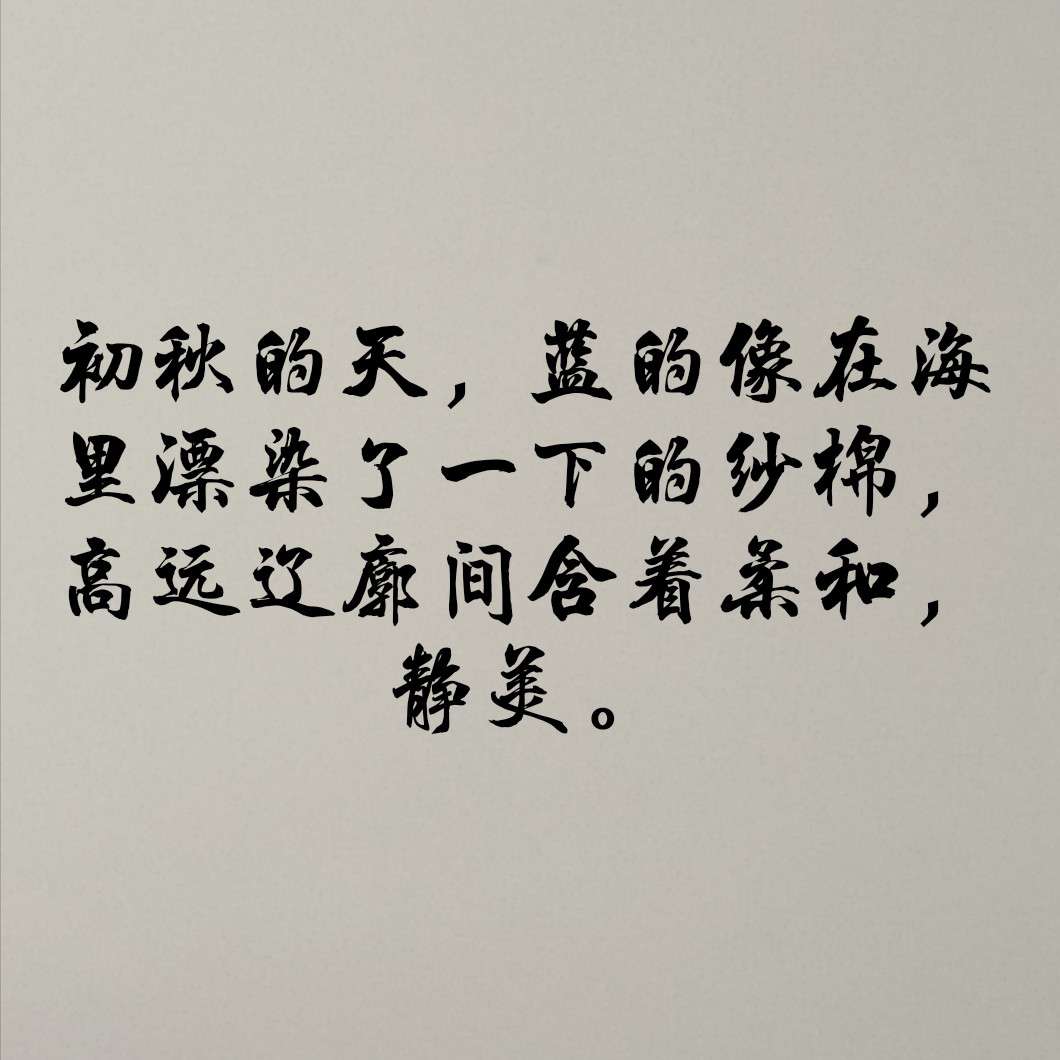 初秋的天，蓝的像在海
里漂染了一下的纱棉，
高远辽廓间含着柔和，
静美。